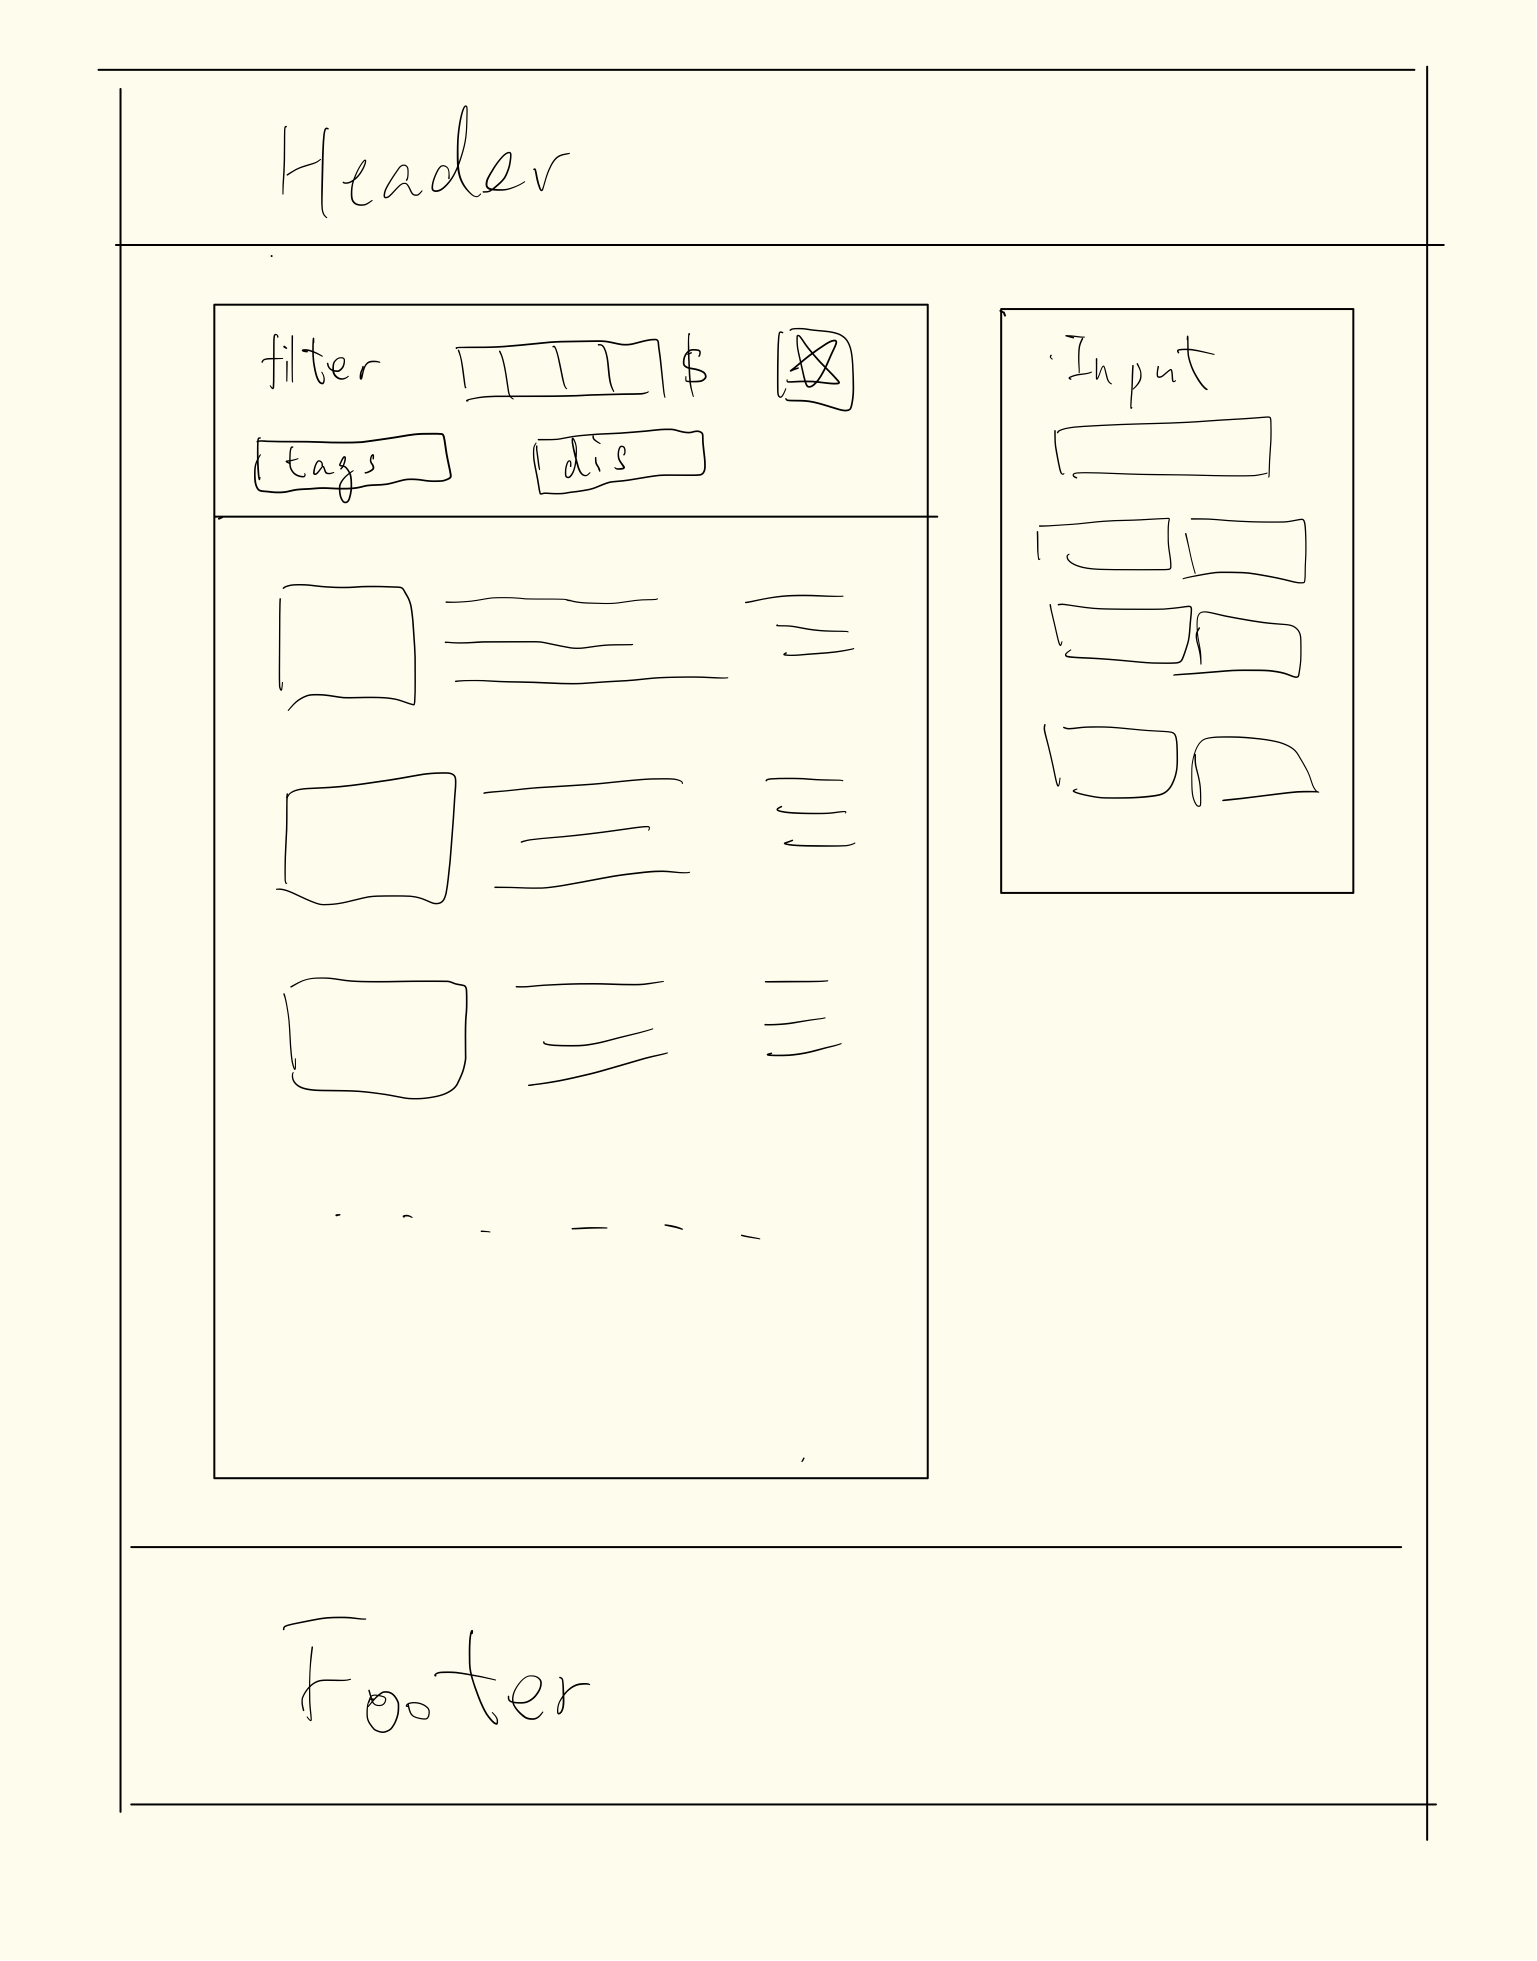 Header
filter $
tags dis
Input
Footer